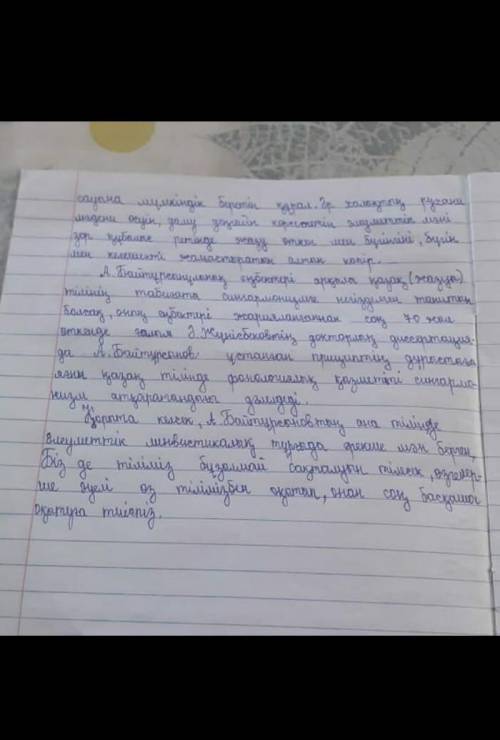 сауана мүмкіндік беретін құрал. Әр халықтың рухани
мәдени өсуін, даму деңгейін көрсететін әлеуметтік мәні
зор құбылыс ретінде жазу өткен мен бүгінгіні, бүгін
мен келешекті жалғастыратын алтын көпір.
А.Байтұрсынұлының еңбектері арқылы қазақ (жазуы)
тілінің табиғаты сингармонизмге негізделген
болсақ, оның еңбектері жарияланғаннан соң 70 жыл
өткенде ғалым Ә.Жүнісбековтің докторлық диссертация-
да А.Байтұрсынов ұстанған принциптің дұрыстығы
яғни қазақ тілінде фонологиялық қызметті сингармо-
низм атқаратындығы дәлелдеді.
Қорыта келсек, А.Байтұрсыновтың ана тілінде
әлеуметтік лингвистикалық тұрғыда ерекше мән берген.
Біз де тіліміз бұзылмай сақталуын тілесек, өзгелер-
ше әуелі өз тілімізбен оқытып, онан соң басқаша
оқытуға тиіспіз.